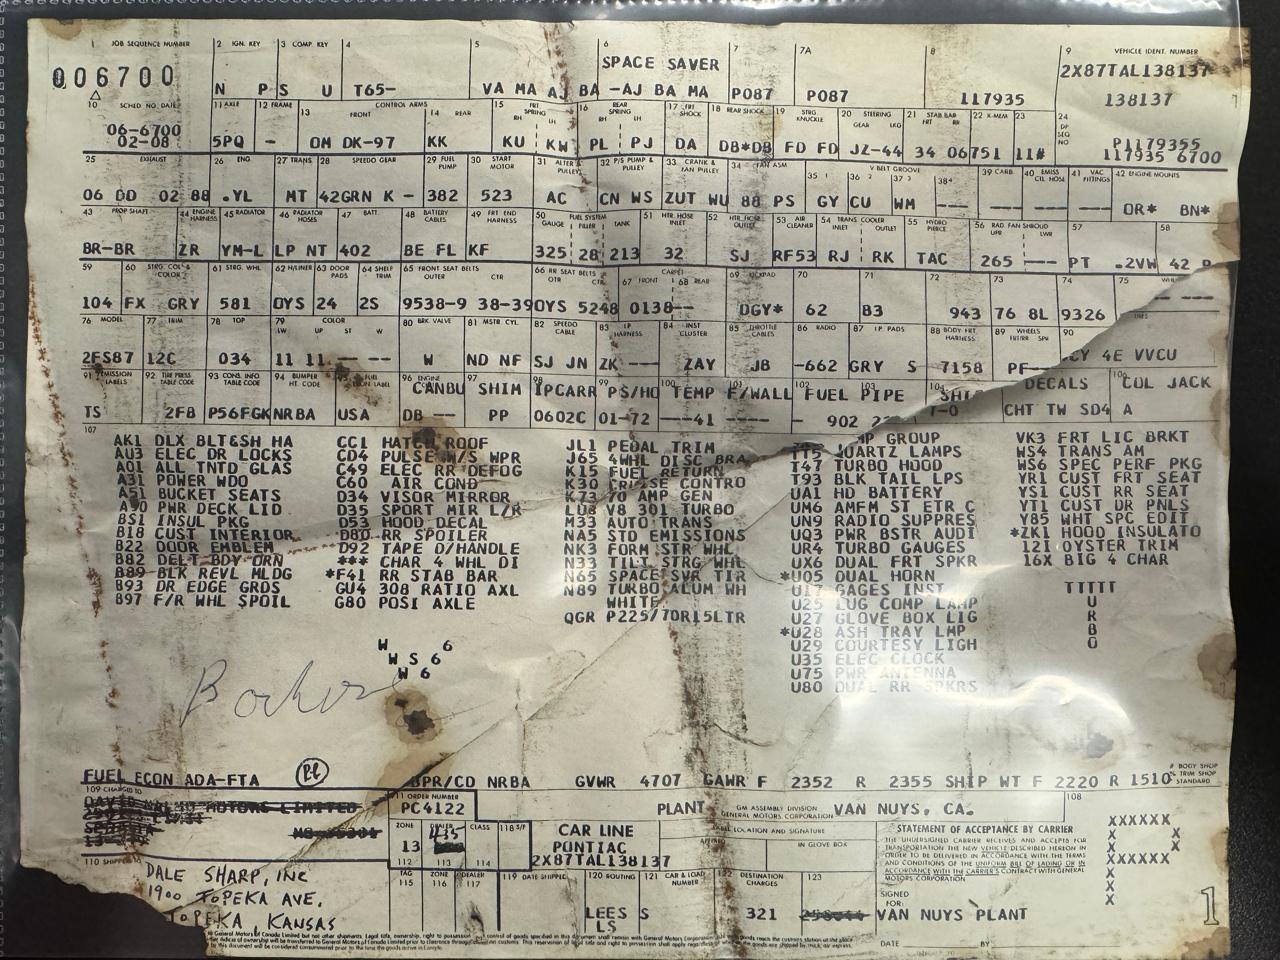 1 JOB SEQUENCE NUMBER 2 IGN. KEY 3 COMP. KEY 4 5 6 7 7A 8 9 VEHICLE IDENT. NUMBER
SPACE SAVER 2X87TAL138137
006700 N P S U T65- VA MA AJ BA -AJ BA MA P087 P087 117935 138137
10 SCHED. NO. DATE 11 AXLE 12 FRAME 13 CONTROL ARMS FRONT 14 REAR 15 FRT. SPRING RH LH 16 REAR SPRING RH LH 17 FRT. SHOCK 18 REAR SHOCK 19 STRG KNUCKLE 20 STEERING GEAR LKG 21 STAB BAR FRT RR 22 X-MEM 23 24
06-6700 P1179355
02-08 5PQ - OM DK-97 KK KU KW PL PJ DA DB*DB FD FD JZ-44 34 06751 11# 117935 6700
25 EXHAUST 26 ENG. 27 TRANS 28 SPEEDO GEAR 29 FUEL PUMP 30 START MOTOR 31 ALTER & PULLEY 32 P/S PUMP & PULLEY 33 CRANK & FAN PULLEY 34 FAN ASM V BELT GROOVE 35 1 36 2 37 3 38 4 39 CARB. 40 EMISS CTL HOSE 41 VAC FITTINGS 42 ENGINE MOUNTS
06 DD 02 88 .YL MT 42GRN K - 382 523 AC CN WS ZUT WU 88 PS GY CU WM --- --- --- --- OR* BN*
43 PROP SHAFT 44 ENGINE HARNESS 45 RADIATOR 46 RADIATOR HOSES 47 BATT. 48 BATTERY CABLES 49 FRT END HARNESS 50 FUEL SYSTEM GAUGE FILLER TANK 51 HTR. HOSE INLET 52 HTR. HOSE OUTLET 53 AIR CLEANER 54 TRANS COOLER INLET OUTLET 55 HYDRO PIERCE 56 RAD. FAN SHROUD UPR LWR 57 58
BR-BR ZR YM-L LP NT 402 BE FL KF 325 28 213 32 SJ RF53 RJ RK TAC 265 --- PT .2VW 42
59 60 STRG. COL & COLOR 61 STRG. WHL 62 H/LINER 63 DOOR PADS 64 SHELF TRIM 65 FRONT SEAT BELTS OUTER CTR 66 RR SEAT BELTS OTR CTR 67 FRONT CARPET 68 REAR 69 70 71 72 73 74 75
104 FX GRY 581 OYS 24 2S 9538-9 38-39OYS 5248 0138-- DGY* 62 B3 943 76 8L 9326 --- ---
76 MODEL 77 TRIM 78 TOP 79 COLOR LW UP ST W 80 BRK VALVE 81 MSTR CYL. 82 SPEEDO CABLE 83 I.P. HARNESS 84 INST CLUSTER 85 THROTTLE CABLES 86 RADIO 87 I.P. PADS 88 BODY FRT. HARNESS 89 WHEELS FRT/RR SPR 90
2FS87 12C 034 11 11 -- -- W ND NF SJ JN ZK --- ZAY JB -662 GRY S 7158 PF- 4E VVCU
91 EMISSION LABELS 92 TIRE PRESS TABLE CODE 93 CONS. INFO TABLE CODE 94 BUMPER HT. CODE 95 FUEL ECON LABEL 96 ENGINE CANBU 97 SHIM 98 IPCARR 99 PS/HO 100 TEMP F/WALL 102 FUEL 103 PIPE 104 DECALS 106 COL JACK
TS 2F8 P56FGK NRBA USA DB -- PP 0602C 01-72 ---41 ---- - 902 CHT TW SD4 A
107
AK1 DLX BLT&SH HA
AU3 ELEC DR LOCKS
A01 ALL TNTD GLAS
A31 POWER WDO
A51 BUCKET SEATS
A90 PWR DECK LID
BS1 INSUL PKG
B18 CUST INTERIOR
B22 DOOR EMBLEM
B82 DELT BDY ORN
B89 BLK REVL MLDG
B93 DR EDGE GRDS
B97 F/R WHL SPOIL
CC1 HATCH ROOF
CD4 PULSE W/S WPR
C49 ELEC RR DEFOG
C60 AIR COND
D34 VISOR MIRROR
D35 SPORT MIR L/R
D53 HOOD DECAL
D80 RR SPOILER
D92 TAPE D/HANDLE
*** CHAR 4 WHL DI
*F41 RR STAB BAR
GU4 308 RATIO AXL
G80 POSI AXLE
JL1 PEDAL TRIM
J65 4WHL DISC BRA
K15 FUEL RETURN
K30 CRUISE CONTRO
K73 70 AMP GEN
LU8 V8 301 TURBO
M33 AUTO TRANS
NA5 STD EMISSIONS
NK3 FORM STR WHL
N33 TILT STRG WHL
N65 SPACE SVR TIR
N89 TURBO ALUM WH
WHITE
QGR P225/70R15LTR
MP GROUP
TT5 QUARTZ LAMPS
T47 TURBO HOOD
T93 BLK TAIL LPS
UA1 HD BATTERY
UM6 AMFM ST ETR C
UN9 RADIO SUPPRES
UQ3 PWR BSTR AUDI
UR4 TURBO GAUGES
UX6 DUAL FRT SPKR
*U05 DUAL HORN
U17 GAGES INST
U25 LUG COMP LAMP
U27 GLOVE BOX LIG
*U28 ASH TRAY LMP
U29 COURTESY LIGH
U35 ELEC CLOCK
U75 PWR ANTENNA
U80 DUAL RR SPKRS
VK3 FRT LIC BRKT
WS4 TRANS AM
WS6 SPEC PERF PKG
YR1 CUST FRT SEAT
YS1 CUST RR SEAT
YT1 CUST DR PNLS
Y85 WHT SPC EDIT
*ZK1 HOOD INSULATO
12I OYSTER TRIM
16X BIG 4 CHAR
TTTTT
U
R
B
O
W 6
W S 6
W 6
FUEL ECON ADA-FTA BPR/CD NRBA GVWR 4707 GAWR F 2352 R 2355 SHIP WT F 2220 R 1510
# BODY SHOP
% TRIM SHOP
STANDARD
109 CHARGED TO
ORDER NUMBER
PC4122
PLANT GM ASSEMBLY DIVISION GENERAL MOTORS CORPORATION VAN NUYS, CA. 108
ZONE 13 CLASS 118 S/P
112 113 114
CAR LINE
PONTIAC
2X87TAL138137
LOCATION AND SIGNATURE
IN GLOVE BOX
STATEMENT OF ACCEPTANCE BY CARRIER
THE UNDERSIGNED CARRIER RECEIVES AND ACCEPTS FOR
TRANSPORTATION THE NEW VEHICLE DESCRIBED HEREON IN
ORDER TO BE DELIVERED IN ACCORDANCE WITH THE TERMS
AND CONDITIONS OF THE UNIFORM BILL OF LADING OR IN
ACCORDANCE WITH THE CARRIER'S CONTRACT WITH GENERAL
MOTORS CORPORATION
SIGNED
FOR:
VAN NUYS PLANT
DATE BY
XXXXXX
X X
X X
XXXXXX
X
X
X
1
110 SHIPPED TO
DALE SHARP, INC
1900 TOPEKA AVE.
TOPEKA, KANSAS
TAG 115 ZONE 116 DEALER 117 119 DATE SHIPPED 120 ROUTING 121 CAR & LOAD NUMBER 122 DESTINATION CHARGES 123
LEES S 321
LS